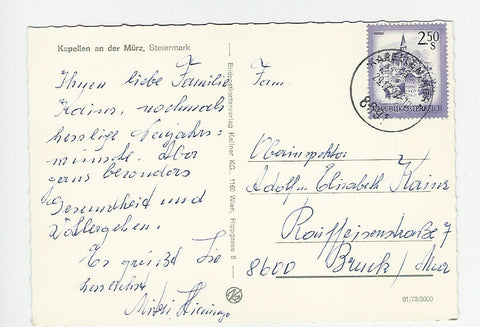 Kapellen an der Mürz, Steiermark
Ihnen liebe Familie
Kainz, nochmals
herzliche Neujahrs=
wünsche. Aber
ganz besonders
Gesundheit und
Wohlergehen.
Es grüßt Sie
herzlichst
Mitzi
Bildpostkartenverlag Kellner KG., 1160 Wien, Hippgasse 8
Fam.
Oberinspektor
Adolf u. Elisabeth Kainz
Raiffeisenstraße 7
8600 Bruck/Mur
2.50
S
REPUBLIK ÖSTERREICH
KAPELLEN
91/73/3000